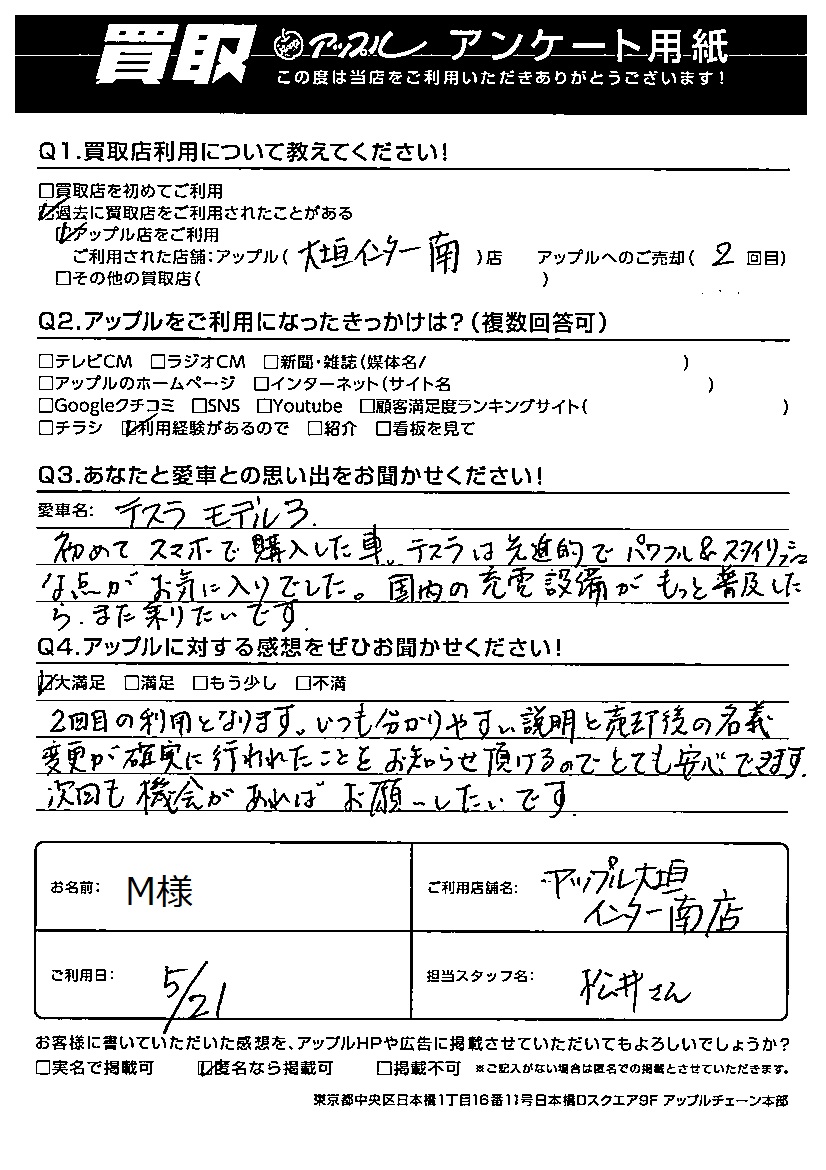 買取 アップル アンケート用紙
この度は当店をご利用いただきありがとうございます!
Q1.買取店利用について教えてください!
□買取店を初めてご利用
☑過去に買取店をご利用されたことがある
☑アップル店をご利用
ご利用された店舗:アップル( 大垣インター南 )店 アップルへのご売却( 2 回目)
□その他の買取店( )
Q2.アップルをご利用になったきっかけは?(複数回答可)
□テレビCM □ラジオCM □新聞・雑誌(媒体名/ )
□アップルのホームページ □インターネット(サイト名 )
□Googleクチコミ □SNS □Youtube □顧客満足度ランキングサイト( )
□チラシ ☑利用経験があるので □紹介 □看板を見て
Q3.あなたと愛車との思い出をお聞かせください!
愛車名: テスラ モデル3.
初めて スマホで購入した車。テスラは先進的で パワフル&スタイリッシュ
な点が お気に入りでした。国内の充電設備が もっと普及した
ら、また乗りたいです.
Q4.アップルに対する感想をぜひお聞かせください!
☑大満足 □満足 □もう少し □不満
2回目の利用となります。いつも分かりやすい説明と売却後の名義
変更が確実に行われたことを お知らせ頂けるのでとても安心できます.
次回も機会があれば お願いしたいです
お名前: M様
ご利用店舗名: アップル大垣
インター南店
ご利用日: 5/21
担当スタッフ名: 松井さん
お客様に書いていただいた感想を、アップルHPや広告に掲載させていただいてもよろしいでしょうか?
□実名で掲載可 ☑匿名なら掲載可 □掲載不可 ※ご記入がない場合は匿名での掲載とさせていただきます。
東京都中央区日本橋1丁目16番11号日本橋Dスクエア9F アップルチェーン本部